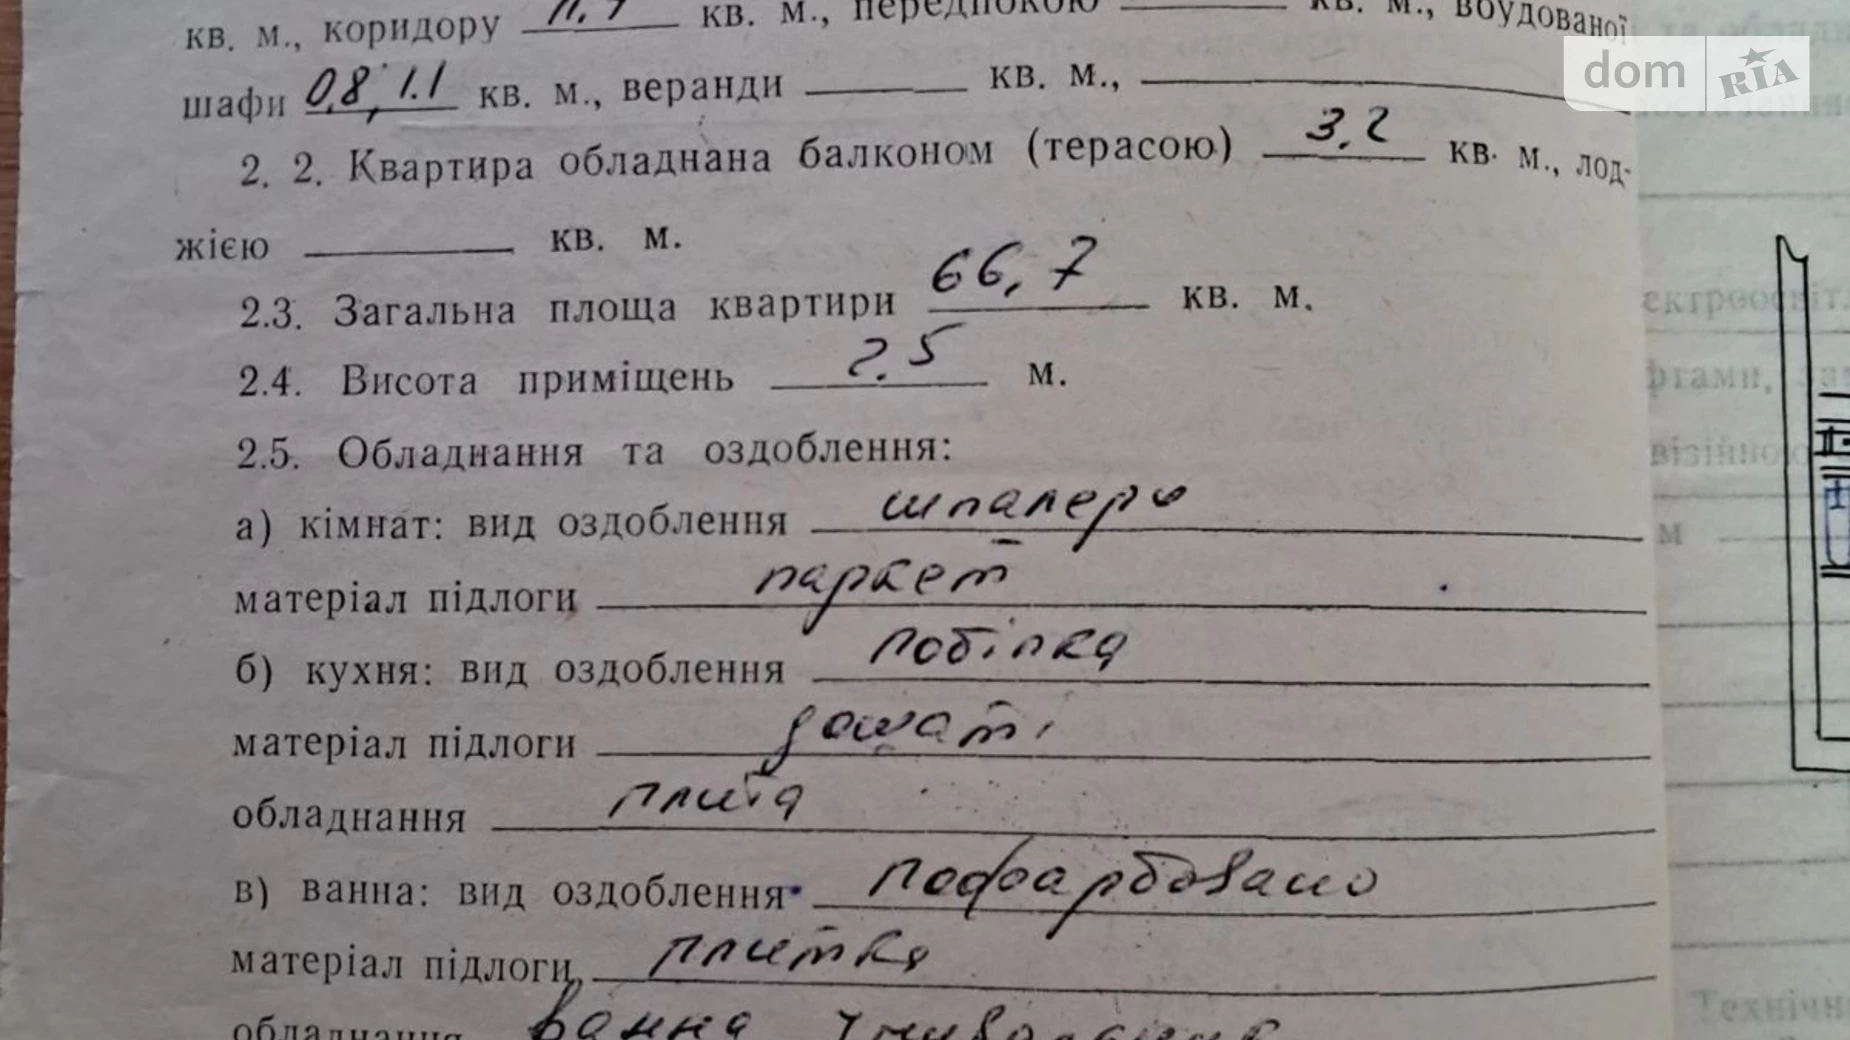 кв. м., коридору 11,4 кв. м., передпокою кв. м., вбудованої
шафи 0,8, 1.1 кв. м., веранди кв. м.,
2. 2. Квартира обладнана балконом (терасою) 3,2 кв. м., лод-
жією кв. м.
2.3. Загальна площа квартири 66,7 кв. м.
2.4. Висота приміщень 2.5 м.
2.5. Обладнання та оздоблення:
а) кімнат: вид оздоблення шпалеры
матеріал підлоги паркет
б) кухня: вид оздоблення побілка
матеріал підлоги дощаті
обладнання плита
в) ванна: вид оздоблення пофарбовано
матеріал підлоги плитка
обладнання ванна умивальник
dom RIA
Технічн